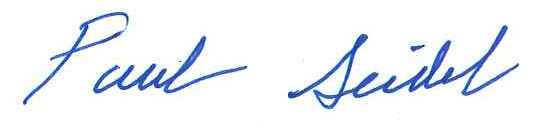 Paul Seidel